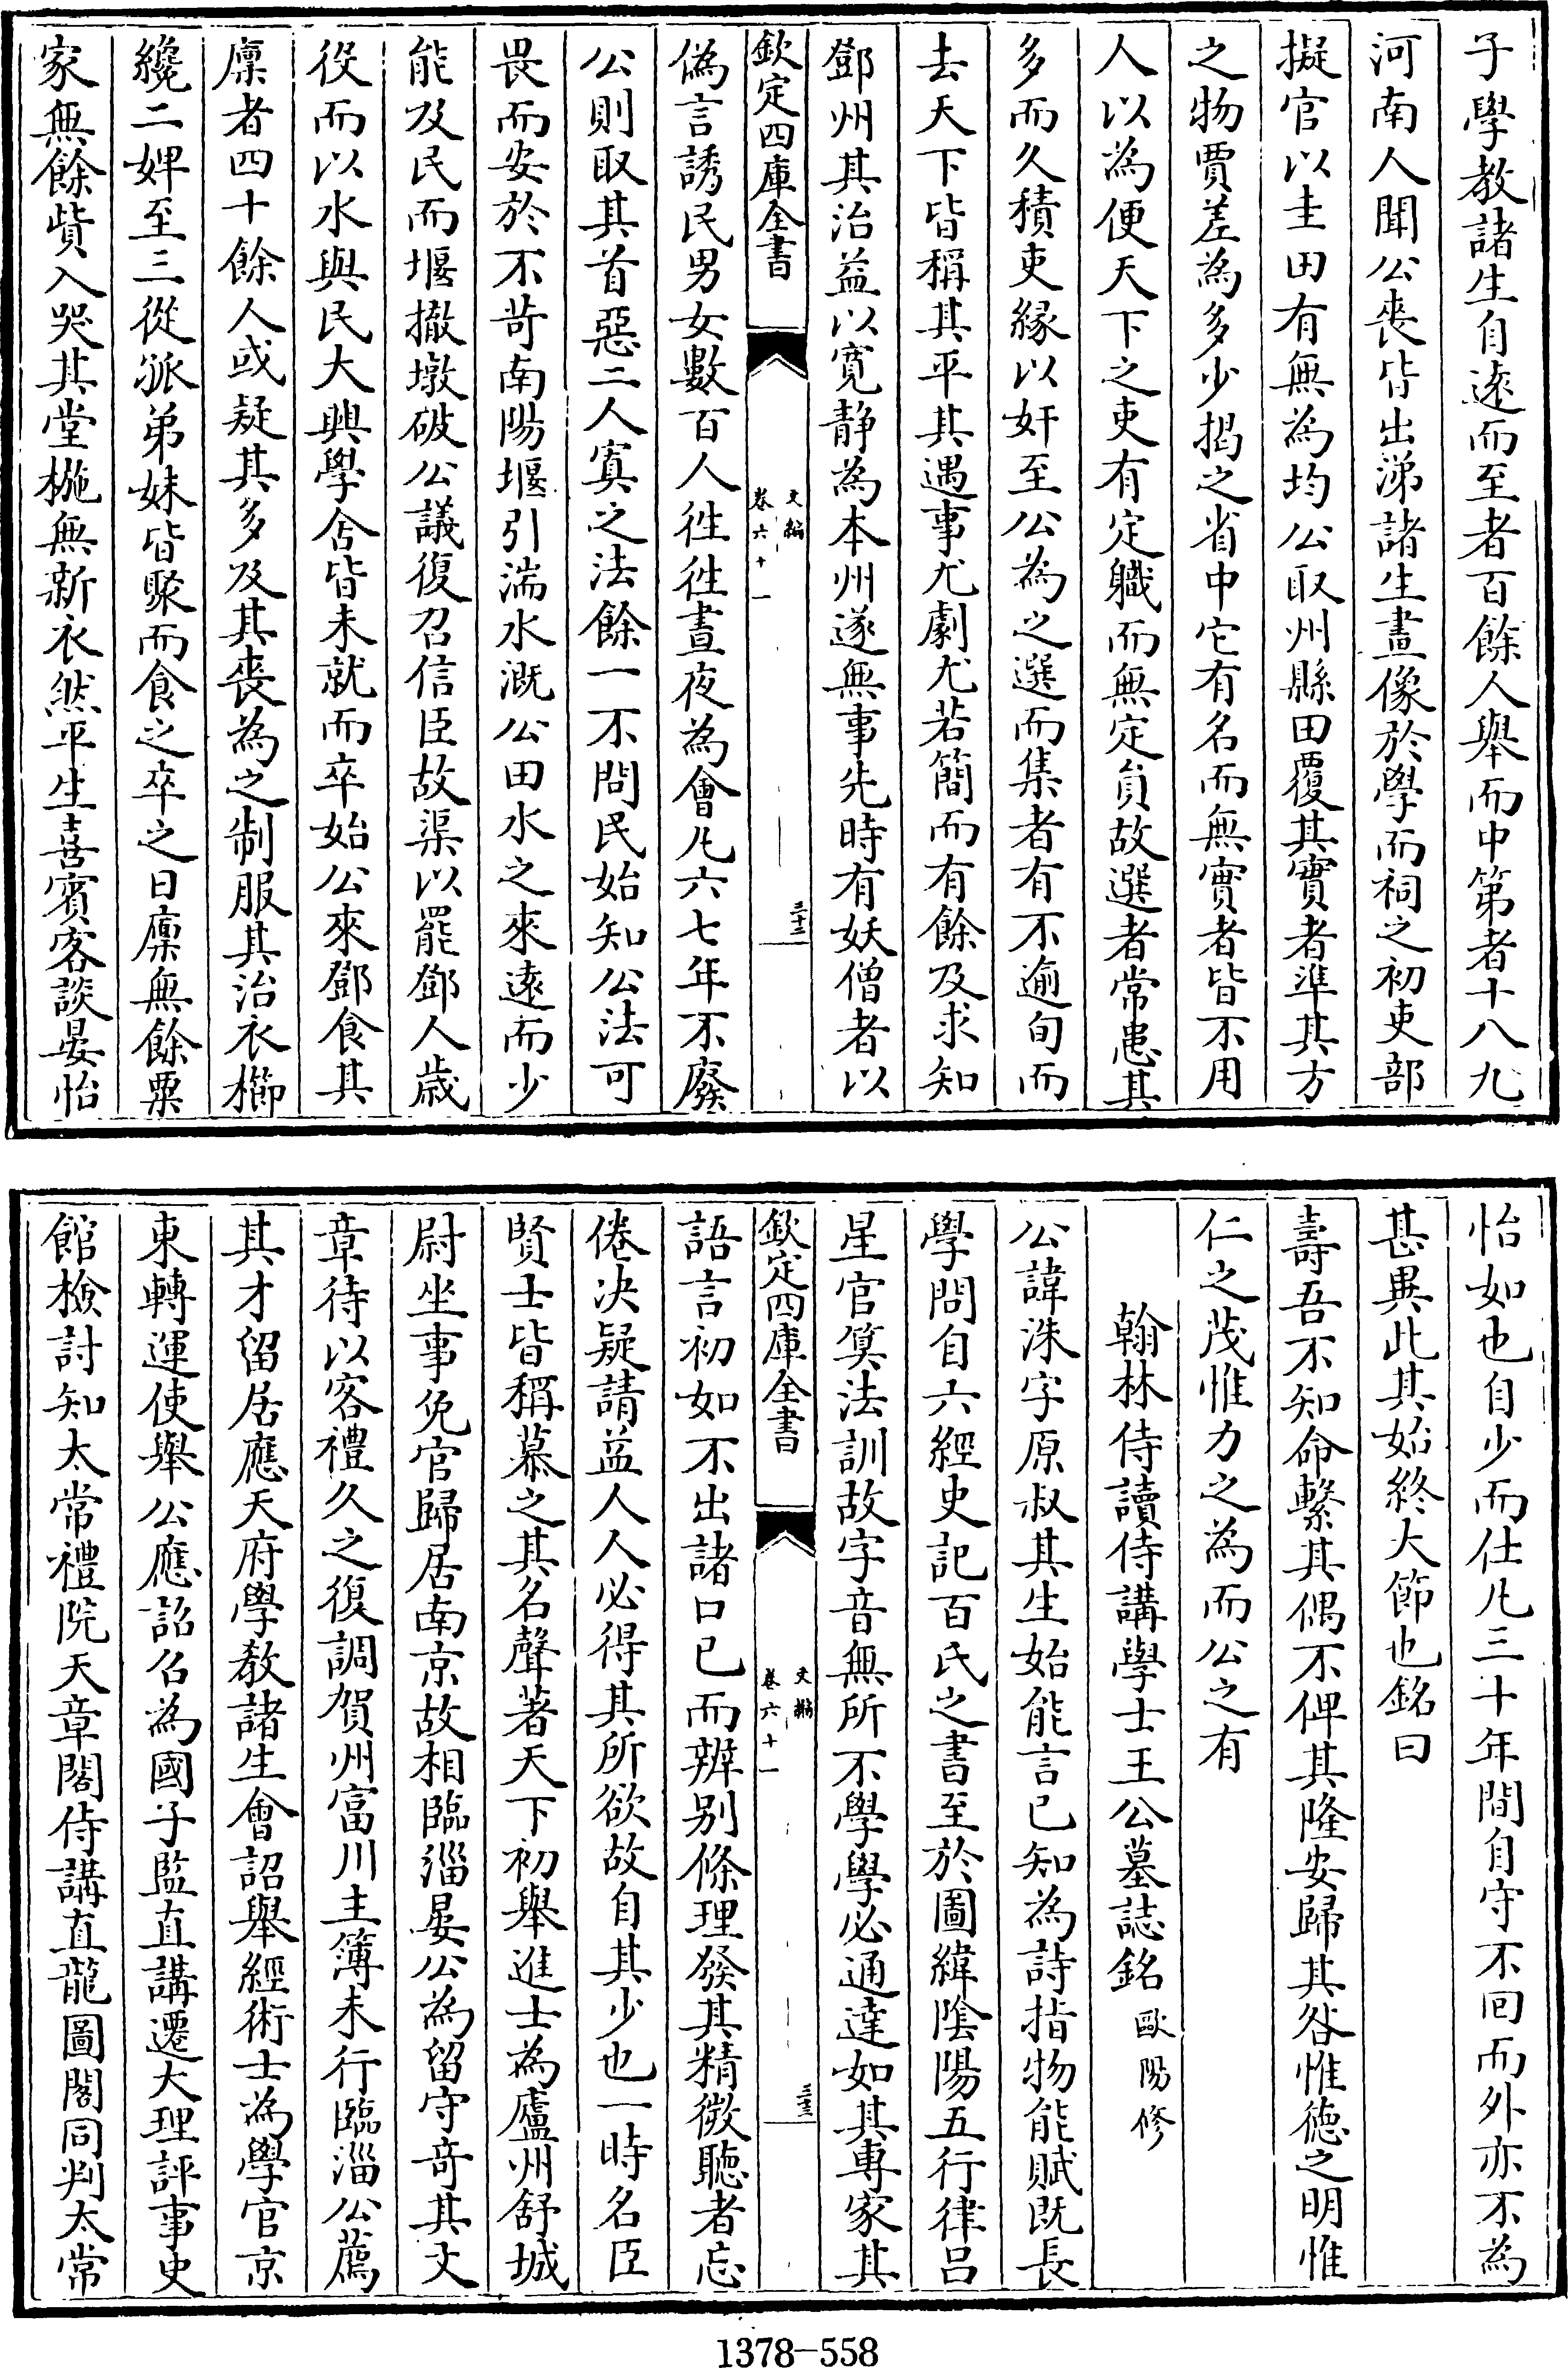 子學教諸生自遠而至者百餘人舉而中第者十八九
河南人聞公喪皆出涕諸生畫像於學而祠之初吏部
擬官以圭田有無為均公取州縣田覆其實者準其方
之物賈差為多少揭之省中它有名而無實者皆不用
人以為便天下之吏有定職而無定員故選者常患其
多而久積吏緣以奸至公為之選而集者有不逾旬而
去天下皆稱其平其遇事尤劇尤若簡而有餘及求知
鄧州其治益以寛静為本州遂無事先時有妖僧者以
欽定四庫全書
文編
卷六十一
三十二
偽言誘民男女數百人徃徃晝夜為會凡六七年不廢
公則取其首惡二人寘之法餘一不問民始知公法可
畏而安於不苛南陽堰引湍水溉公田水之來遠而少
能及民而堰撤墩破公議復召信臣故渠以罷鄧人歳
役而以水與民大興學舎皆未就而卒始公來鄧食其
廪者四十餘人或疑其多及其喪為之制服其治衣櫛
纔二婢至三從孤弟妹皆聚而食之卒之日廪無餘粟
家無餘貲入哭其堂椸無新衣然平生喜賓客談晏怡
怡如也自少而仕凡三十年間自守不囘而外亦不為
甚異此其始終大節也銘曰
壽吾不知命繫其偶不俾其隆安歸其咎惟徳之明惟
仁之茂惟力之為而公之有
翰林侍讀侍講學士王公墓誌銘歐陽修
公諱洙字原叔其生始能言已知為詩指物能賦既長
學問自六經史記百氏之書至於圖緯隂陽五行律吕
星官筭法訓故字音無所不學學必通達如其專家其
欽定四庫全書
文編
卷六十一
三十三
語言初如不出諸口已而辨别條理發其精微聽者忘
倦决疑請益人人必得其所欲故自其少也一時名臣
賢士皆稱慕之其名聲著天下初舉進士為廬州舒城
尉坐事免官歸居南京故相臨淄晏公為留守竒其文
章待以客禮久之復調賀州富川主簿未行臨淄公薦
其才留居應天府學教諸生會詔舉經術士為學官京
東轉運使舉公應詔召為國子監直講遷大理評事史
館檢討知太常禮院天章閣侍講直龍圖閣同判太常
1378-558